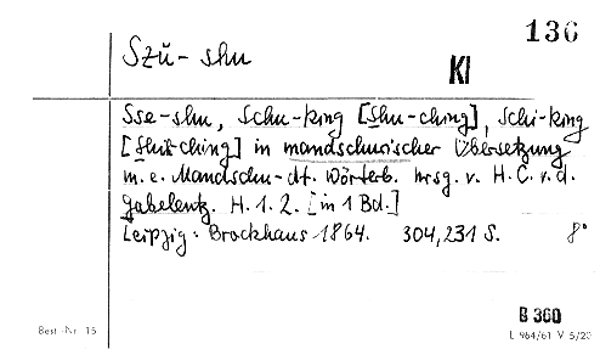 136
Szŭ-shu
Kl
Sse-shu, Schu-king [Shu-ching], Schi-king
[Shih-ching] in mandschurischer Übersetzung
m. e. Mandschu-dt. Wörterb. hrsg. v. H. C. v. d.
Gabelentz. H. 1. 2. [in 1 Bd.]
Leipzig: Brockhaus 1864. 304, 231 S. 8°
B 360
Best.-Nr. 15
L 964/61 V 5/20